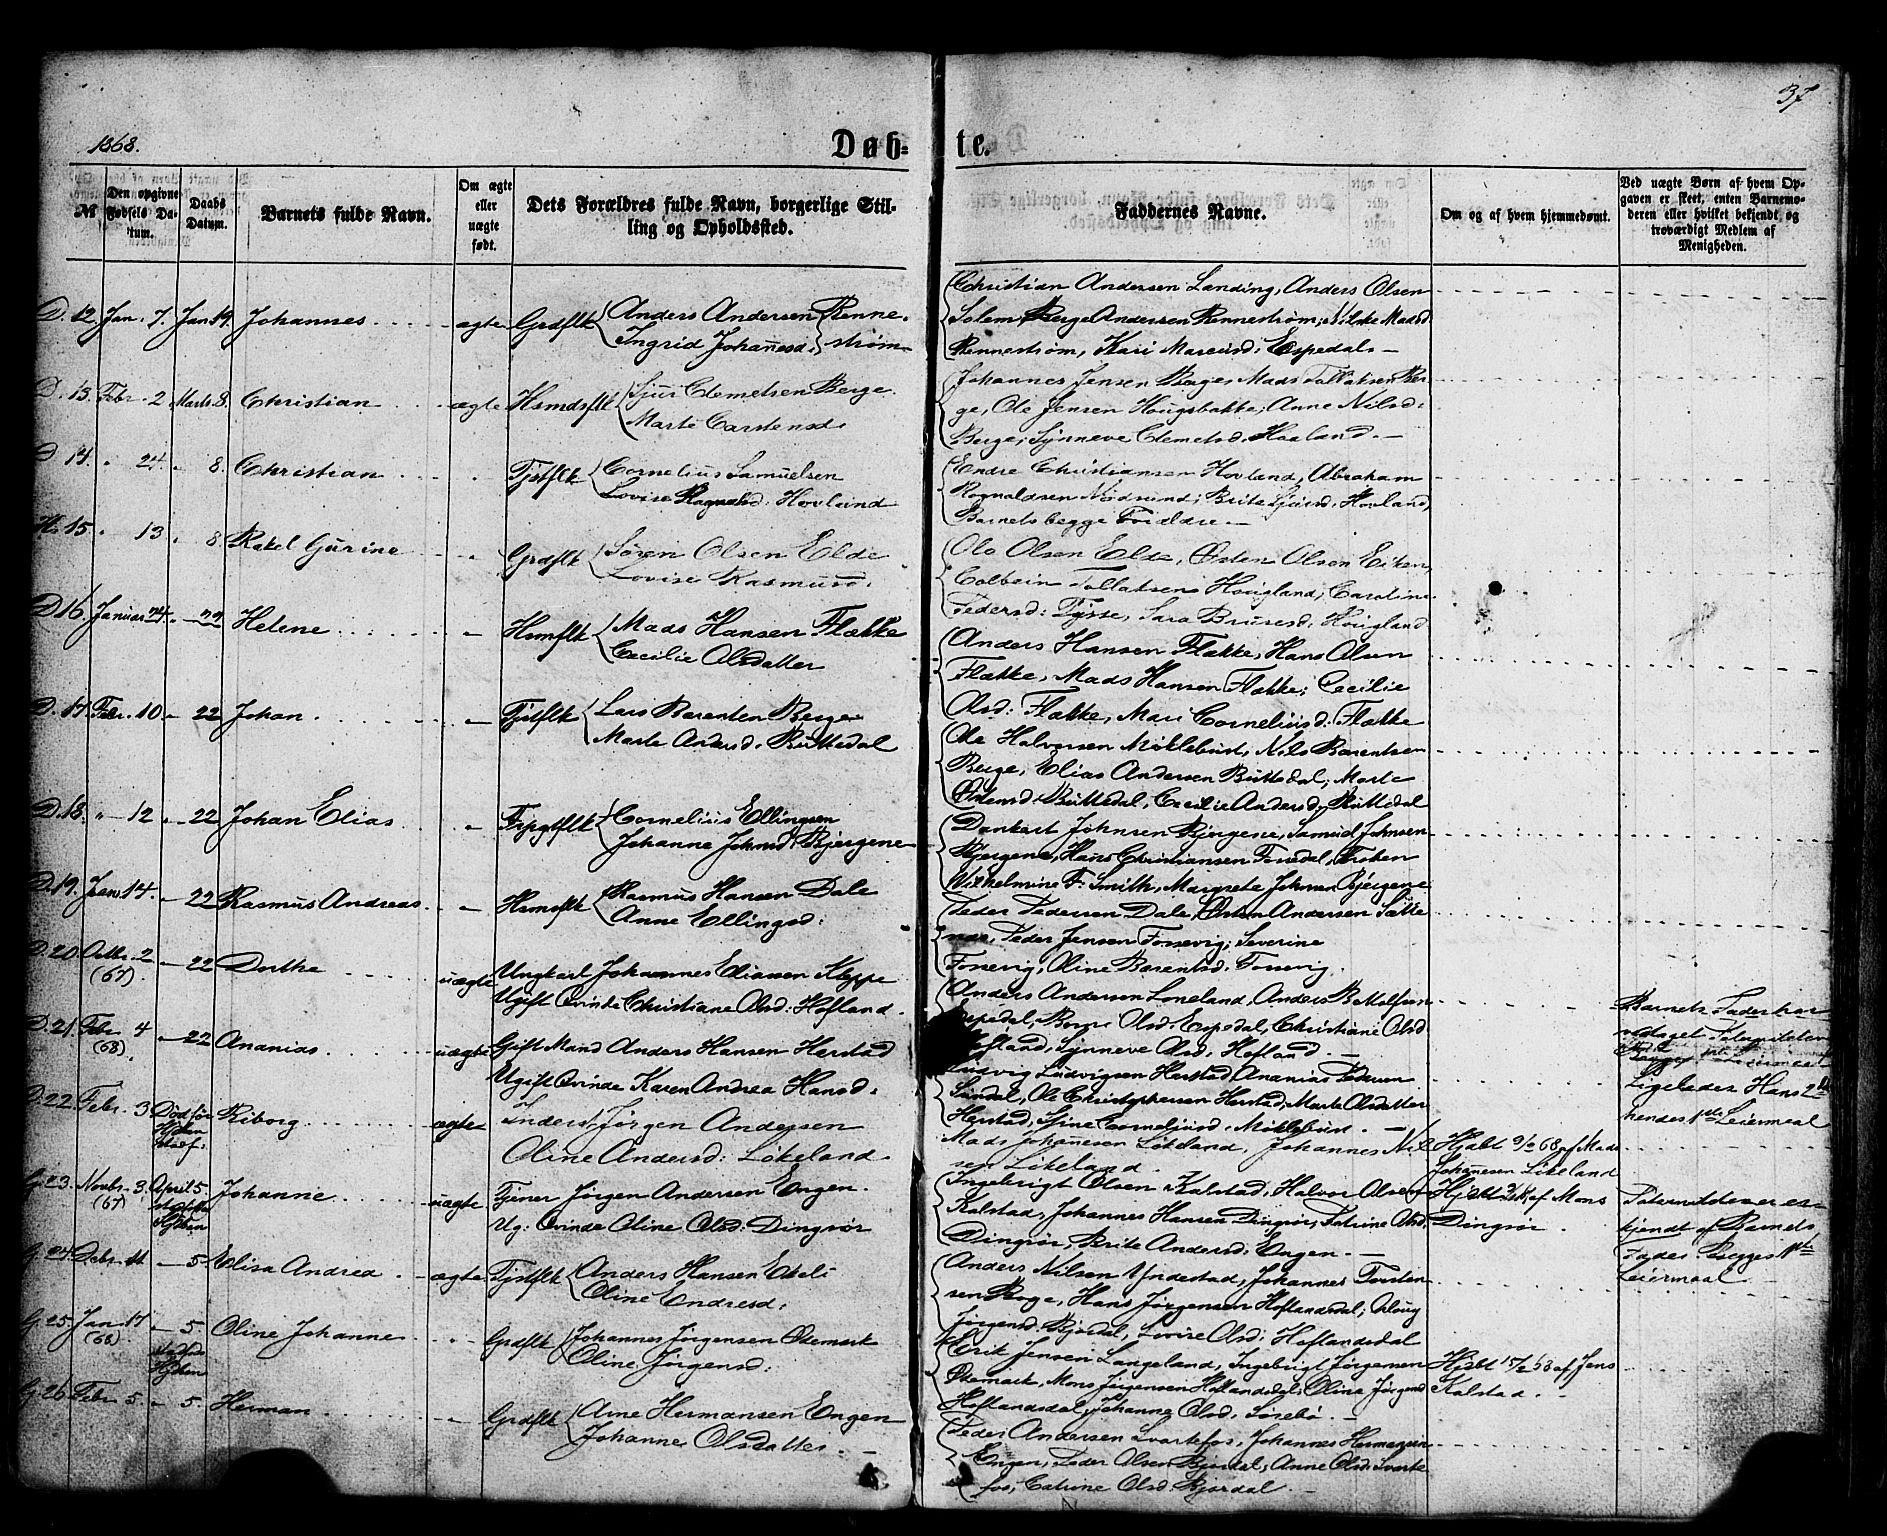 37
1868.
Døb-
te.
№
Den opgivne Fødsels Da-tum.
Daabs Datum.
Barnets fulde Navn.
Om ægte eller uægte født.
Dets Forældres fulde Navn, borgerlige Stil-
ling og Opholdssted.
Faddernes Navne.
Om og af hvem hjemmedøbt.
Ved uægte Børn af hvem Op-
gaven er skeet, enten Barnemo-
deren eller hvilket bekjendt og
troværdigt Medlem af
Menigheden.
D. 12. Jan. 7. Jan 19. Johannes ægte Grdflk Anders Andersen Renne-
Ingrid Johannesd: strøm
Christian Andersen Landing, Anders Olsen
Solem Berge Andersen Rennestrøm; Madsd
Rennestrøm, Kari Marcusd: Espedal
D. 13. Febr. 2. Marts 8. Christian ægte Hsmdsflk Sjur Clemetsen Berge
Marte Carstensd.
Johannes Jensen Berge, Mads Tollaksen Ber-
ge, Ole Jensen Hougsbakke; Anne Nilsd:
Berge; Synneve Clemetsd. Haaland.
D 14. " 24. " 8. Christian " Tjstflk Cornelius Samuelsen
Lovise Hovland
Endre Christiansen Hovland, Abraham
Rognaldsen Nødsund; Brite Sjursd; Hovland,
Barnets begge Forældre.
H. 15. " 13 " 8. Rakel Gurine " Grdflk Søren Olsen Elde
Lovise Rasmusd:
Ole Olsen Elde, Østen Olsen Eiken,
Colbein Tollaksen Hougland; Caroline
Pedersd: Tysse, Sara Brunesd: Hougland
D 16. Januar 24. " 22 Helene " Hsmflk Mads Hansen Flække
Cecilie Olsdatter
Anders Hansen Flække, Hans Olsen
Flække, Mads Hansen Flække; Cecilie
Olsd: Flække, Mari Corneliusd: Flække
D. 17. Febr. 10 " 22 Johan " Tjstflk Lars Barentsen Berge
Marte Andersd. Buttedal
Ole Halvorsen Møklebust, Nils Barentsen
Berge, Elias Andersen Buttedal; Marte
Østensd: Buttedal, Cecilie Andersd, Buttedal
D. 18. " 12 " 22 Johan Elias " Cornelius Ellingsen
Johanne Johnsd Bjergene
Dankert Johnsen Bjergene, Samuel Johnsen
Bjergene, Hans Christiansen Fossedal; Frøken
Wilhelmine F. Smith, Margrete Johnsen Bjergene
D. 19. Jan. 14. " 22 Rasmus Andreas " Hsmsflk Rasmus Hansen Dale
Anne Ellingsd:
Peder Pedersen Dale, Østen Andersen Sætte
nes, Peder Jensen Fossevig; Severine
Fossevig, Oline Barentsd. Fossevig.
D. 20. Octbr. 2 (67) " 22 Dorthe uægte Ungkarl Johannes Eliassen Kleppe
Ugift Qvinde Christiane Olsd: Hofland.
Anders Andersen Loneland, Anders
Espedal, Olsd. Espedal, Christiane Olsd
Hofland, Synneve Olsd. Hofland.
Barnets Fader har
vedtaget Paterniteten
D. 21. Febr. 4 (68) " 22 Ananias uægte Gift Mand Anders Hansen Herstad
Ugift Qvinde Karen Andrea Hansd:
Ludvig Ludvigsen Herstad, Ananias Pedersen
Sandal, Ole Christophersen Herstad; Marte Olsdatter
Herstad, Stine Corneliusd. Møklebust.
Ligeledes Hans 2det
hendes 1ste Leiermaal
D. 22 Febr. 3 Død før Riborg ægte Inderst Jørgen Andersen
Oline Andersd: Løkeland
Mads Johannesen Løkeland, Johannes Nil-
sen Løkeland.
Hjdbt 9/2 68 af Mads
Johannesen Løkeland
G. 23. Novbr. 3. (67) April 5. Johanne uægte Tjener Jørgen Andersen Engen.
Ug: Qvinde Oline Olsd: Dingsør
Ingebrigt Olsen Kalstad, Halvor Olsen
Kalstad, Johannes Hansen Dingsør, Olsd.
Dingsør, Brite Andersd, Engen.
Hjdbt af Mons
Dingsør.
Paterniteten er er-
kjendt af Barnets
Fader Begges 1ste
Leiermaal
G. 24. Debr. 11 " 5. Elisa Andrea ægte Tjstflk Anders Hansen Eteli
Oline Endresd:
Anders Nilsen Yndestad, Johannes Torsten-
sen Boge, Hans Jørgensen Hoflandsdal;
Jørgensd. Bjordal, Lovise Olsd: Hoflandsdal
G. 25. Jan. 17 (68) " 5. Oline Johanne " Grdflk Johannes Jørgensen Ødemark
Oline Jørgensd:
Erik Jensen Langeland, Ingebrigt Jørgensen
Ødemark, Mons Jørgensen Hoflandsdal; Olina Jørgensd
Hoflandsdal, Johanne Olsd. Sørebø.
Hjdbt 15/2 68 af Jens
Kalstad.
G. 26. Febr. 5. " 5. Herman " Grdflk Arne Hermansen Engen
Johanne Olsdatter.
Peder Andersen Svartefos, Johannes Hermansen
Engen, Peder Olsen Bjordal; Anne Olsd. Svarte
fos, Catrine Olsd. Bjordal.